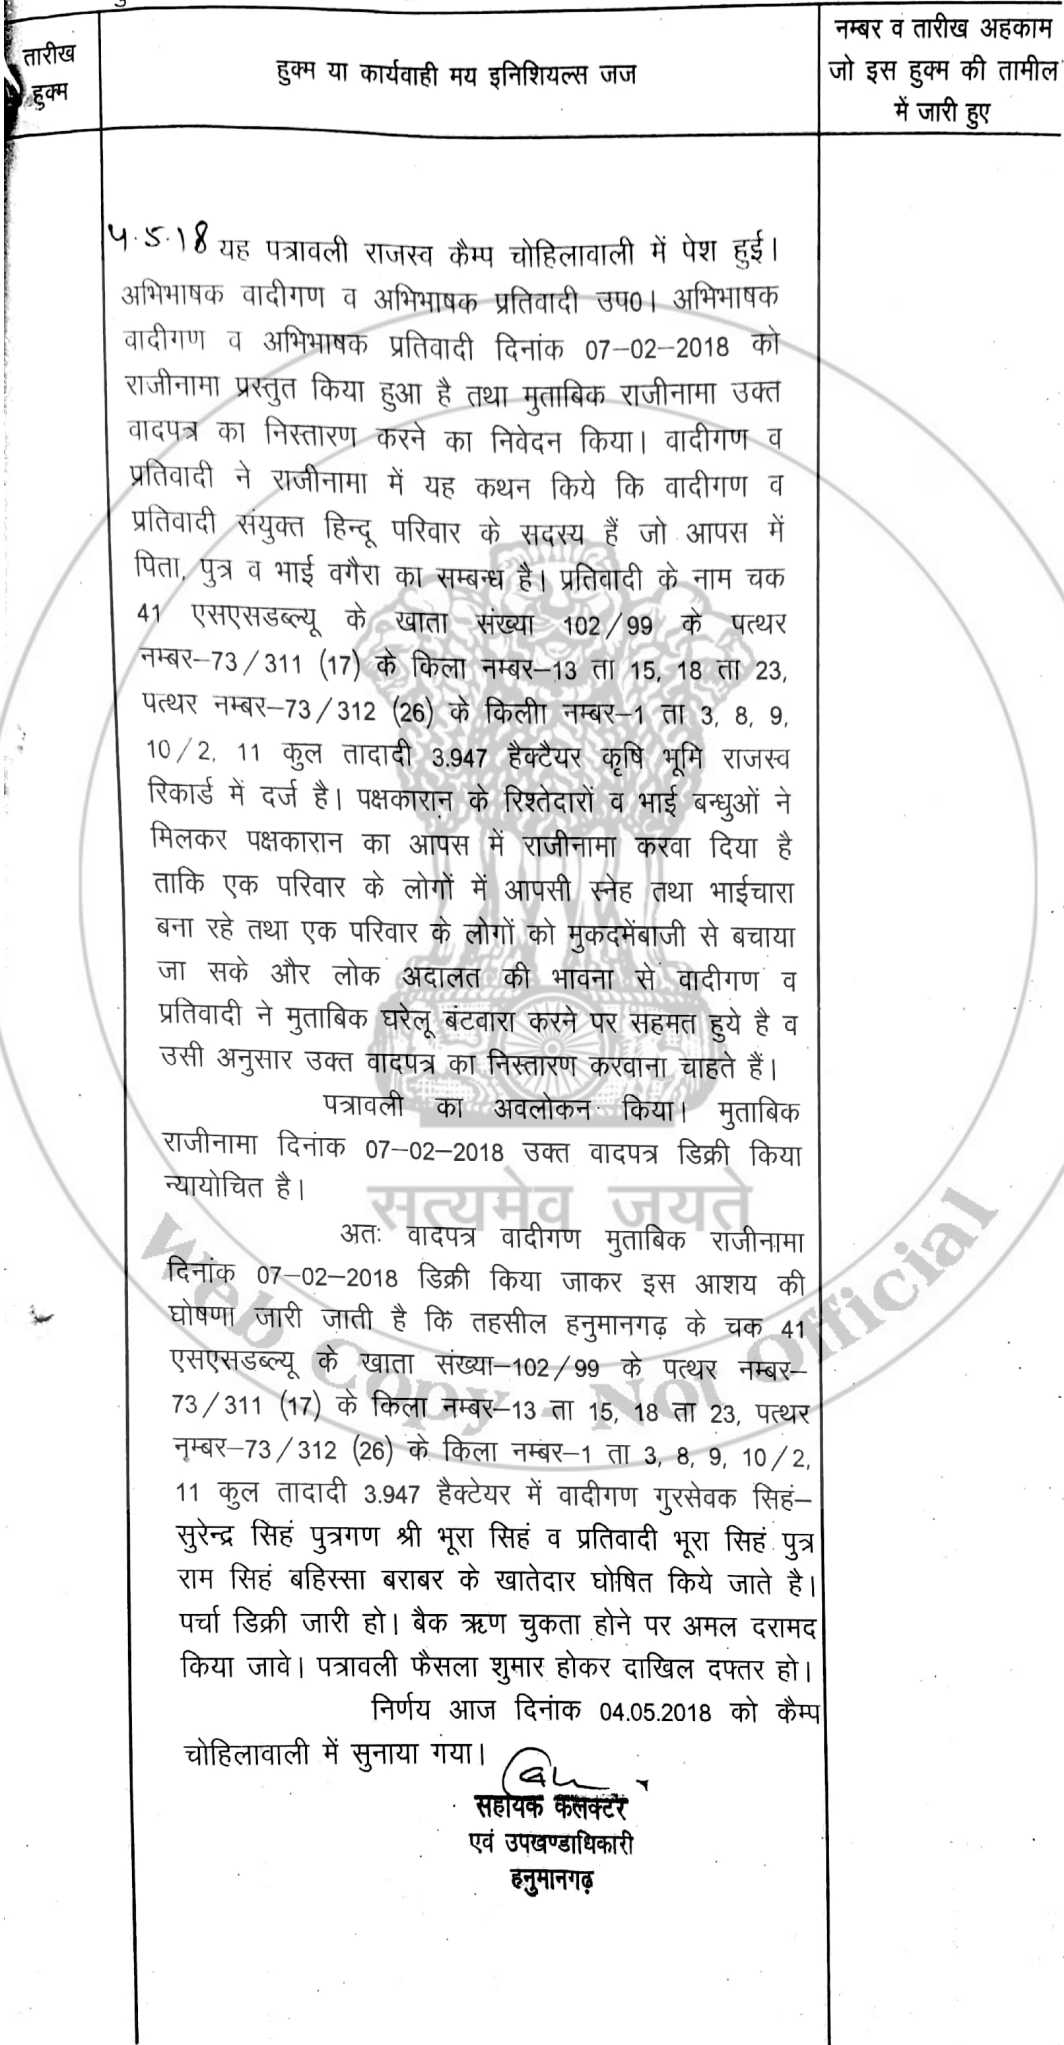 तारीख
हुक्म
हुक्म या कार्यवाही मय इनिशियल्स जज
नम्बर व तारीख अहकाम
जो इस हुक्म की तामील
में जारी हुए
4.5.18 यह पत्रावली राजस्व कैम्प चोहिलावाली में पेश हुई।
अभिभाषक वादीगण व अभिभाषक प्रतिवादी उप0। अभिभाषक
वादीगण व अभिभाषक प्रतिवादी दिनांक 07-02-2018 को
राजीनामा प्रस्तुत किया हुआ है तथा मुताबिक राजीनामा उक्त
वादपत्र का निस्तारण करने का निवेदन किया। वादीगण व
प्रतिवादी ने राजीनामा में यह कथन किये कि वादीगण व
प्रतिवादी संयुक्त हिन्दू परिवार के सदस्य हैं जो आपस में
पिता, पुत्र व भाई वगैरा का सम्बन्ध है। प्रतिवादी के नाम चक
41 एसएसडब्ल्यू के खाता संख्या 102/99 के पत्थर
नम्बर-73/311 (17) के किला नम्बर-13 ता 15, 18 ता 23,
पत्थर नम्बर-73/312 (26) के किलीा नम्बर-1 ता 3, 8, 9,
10/2, 11 कुल तादादी 3.947 हैक्टैयर कृषि भूमि राजस्व
रिकार्ड में दर्ज है। पक्षकारान के रिश्तेदारों व भाई बन्धुओं ने
मिलकर पक्षकारान का आपस में राजीनामा करवा दिया है
ताकि एक परिवार के लोगों में आपसी स्नेह तथा भाईचारा
बना रहे तथा एक परिवार के लोगों को मुकदमेंबाजी से बचाया
जा सके और लोक अदालत की भावना से वादीगण व
प्रतिवादी ने मुताबिक घरेलू बंटवारा करने पर सहमत हुये है व
उसी अनुसार उक्त वादपत्र का निस्तारण करवाना चाहते हैं।
पत्रावली का अवलोकन किया। मुताबिक
राजीनामा दिनांक 07-02-2018 उक्त वादपत्र डिक्री किया
न्यायोचित है।
सत्यमेव जयते
अतः वादपत्र वादीगण मुताबिक राजीनामा
दिनांक 07-02-2018 डिक्री किया जाकर इस आशय की
घोषणा जारी जाती है कि तहसील हनुमानगढ़ के चक 41
एसएसडब्ल्यू के खाता संख्या-102/99 के पत्थर नम्बर-
73/311 (17) के किला नम्बर-13 ता 15, 18 ता 23, पत्थर
नम्बर-73/312 (26) के किला नम्बर-1 ता 3, 8, 9, 10/2,
11 कुल तादादी 3.947 हैक्टेयर में वादीगण गुरसेवक सिहं-
सुरेन्द्र सिहं पुत्रगण श्री भूरा सिहं व प्रतिवादी भूरा सिहं पुत्र
राम सिहं बहिस्सा बराबर के खातेदार घोषित किये जाते है।
पर्चा डिक्री जारी हो। बैक ऋण चुकता होने पर अमल दरामद
किया जावे। पत्रावली फैसला शुमार होकर दाखिल दफ्तर हो।
निर्णय आज दिनांक 04.05.2018 को कैम्प
चोहिलावाली में सुनाया गया।
सहायक कलक्टर
एवं उपखण्डाधिकारी
हनुमानगढ़
Web Copy - Not Official